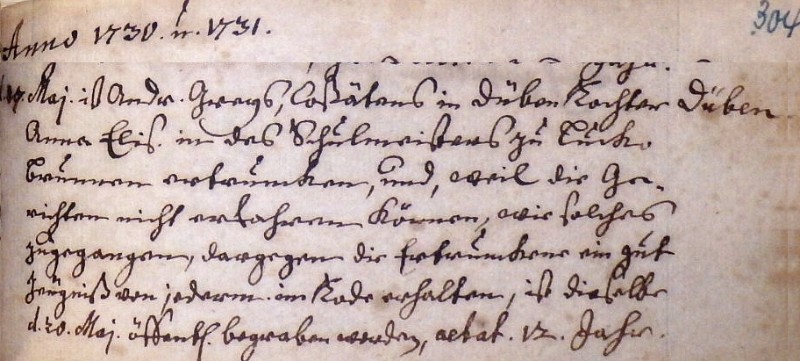 304
Anno 1730. u. 1731.
17. Maj. ist Andr. Greys, Coßätens in Düben Tochter Düben
Anna Elis. in des Schulmeisters zu Lucko
brunnen ertruncken, und, weil die Ge-
richten nicht erfahren können, wie solches
zugegangen, dargegen die Ertrunckene ein gut
Zeugniß von jederm. im Tode erhalten, ist dieselbe
d. 20. Maj. öffentl. begraben worden, aetat. 12. Jahr.